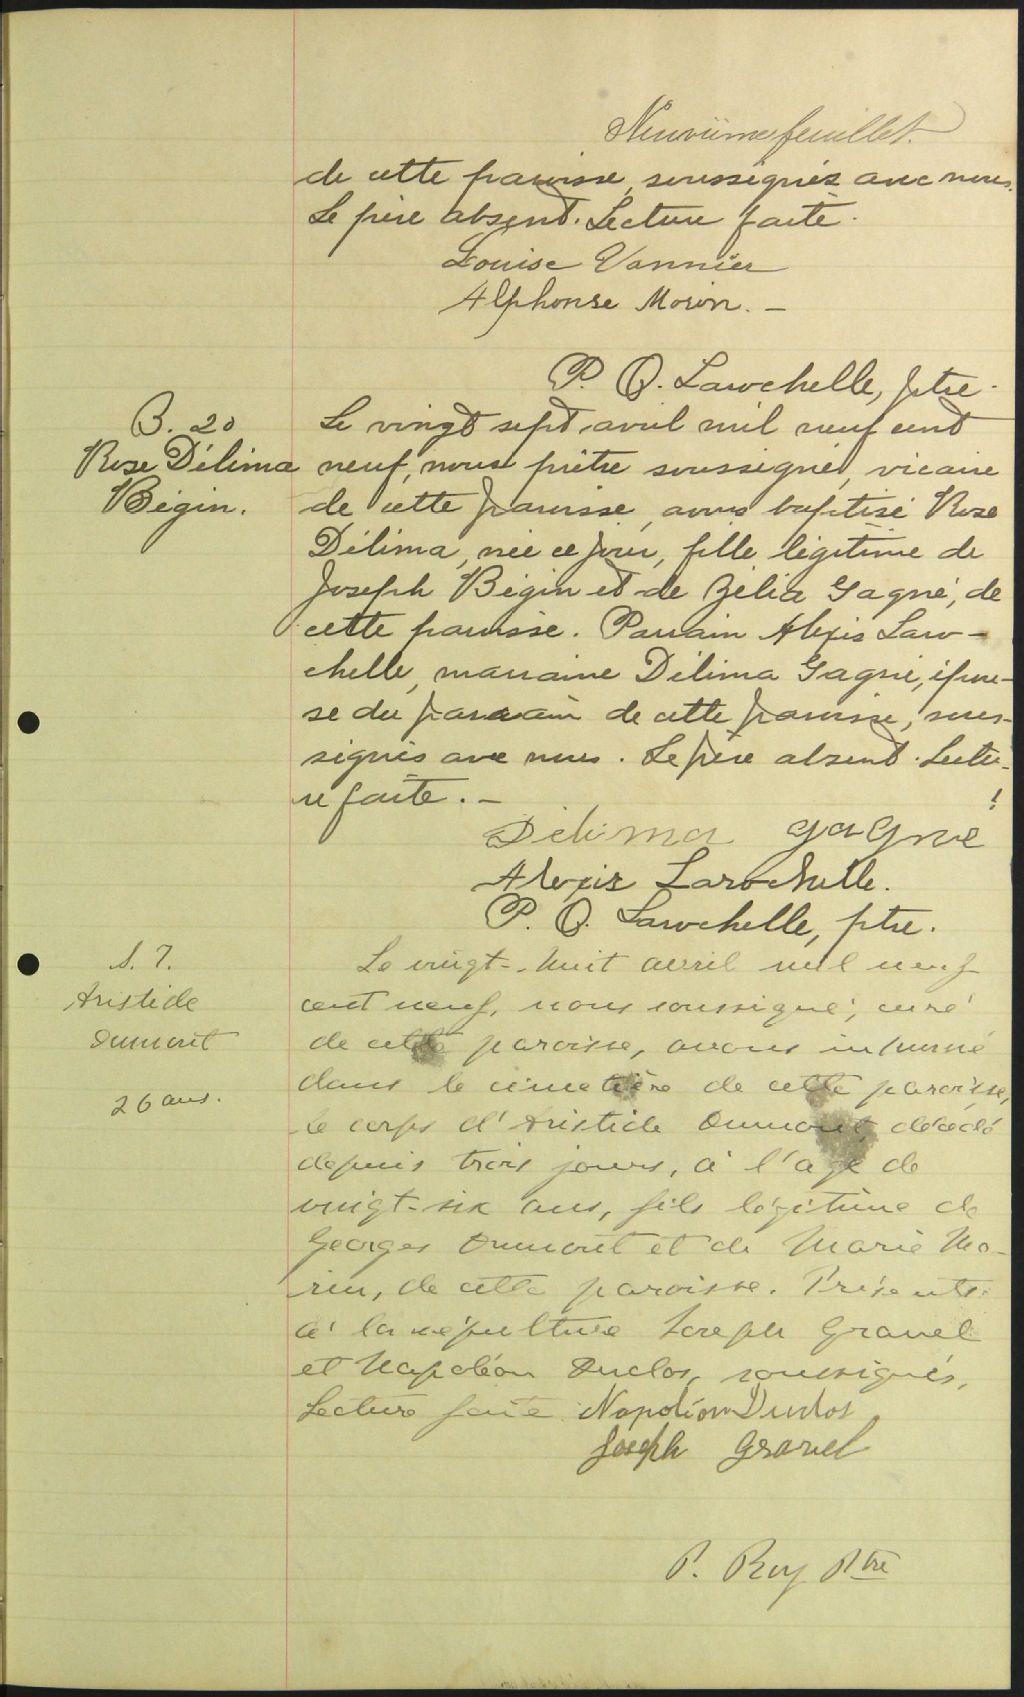 Neuvième feuillet.
de cette paroisse, soussignés avec nous.
Le père absent. Lecture faite.
Louise Vannier
Alphonse Morin. -
P. O. Larochelle, ptre.
B. 20
Rose Délima
Bégin.
Le vingt sept avril mil neuf cent
neuf, nous prêtre soussigné, vicaire
de cette paroisse, avons baptisé Rose
Délima, née ce jour, fille légitime de
Joseph Bégin et de Zélia Gagné, de
cette paroisse. Parrain Alexis Laro-
chelle, marraine Délima Gagné, épou-
se du parrain de cette paroisse, sous-
signés avec nous. Le père absent. Lectu-
re faite. -
Délima Gagné
Alexis Larochelle.
P. O. Larochelle, ptre.
S. 7.
Aristide
Dumont
26 ans.
Le vingt-huit avril mil neuf
cent neuf, nous soussigné, curé
de cette paroisse, avons inhumé
dans le cimetière de cette paroisse,
le corps d'Aristide Dumont, décédé
depuis trois jours, à l'age de
vingt-six ans, fils légitime de
Georges Dumont et de Marie Mo-
rin, de cette paroisse. Présents
à la sépulture Joseph Gravel
et Napoléon Duclos, soussignés,
Lecture faite. Napoléon Duclos
Joseph Gravel
P. Roy Ptre